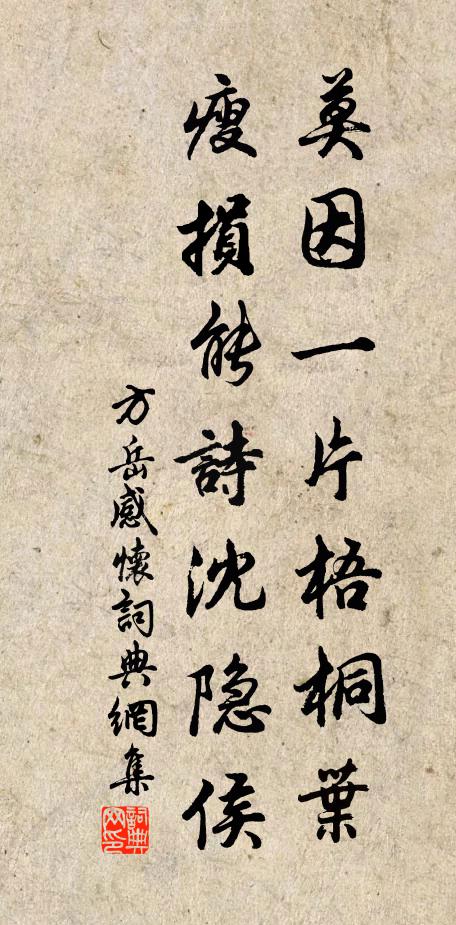 莫因一片梧桐葉
瘦損能詩沈隐侯
方岳感懷詞典網集
詞典网印